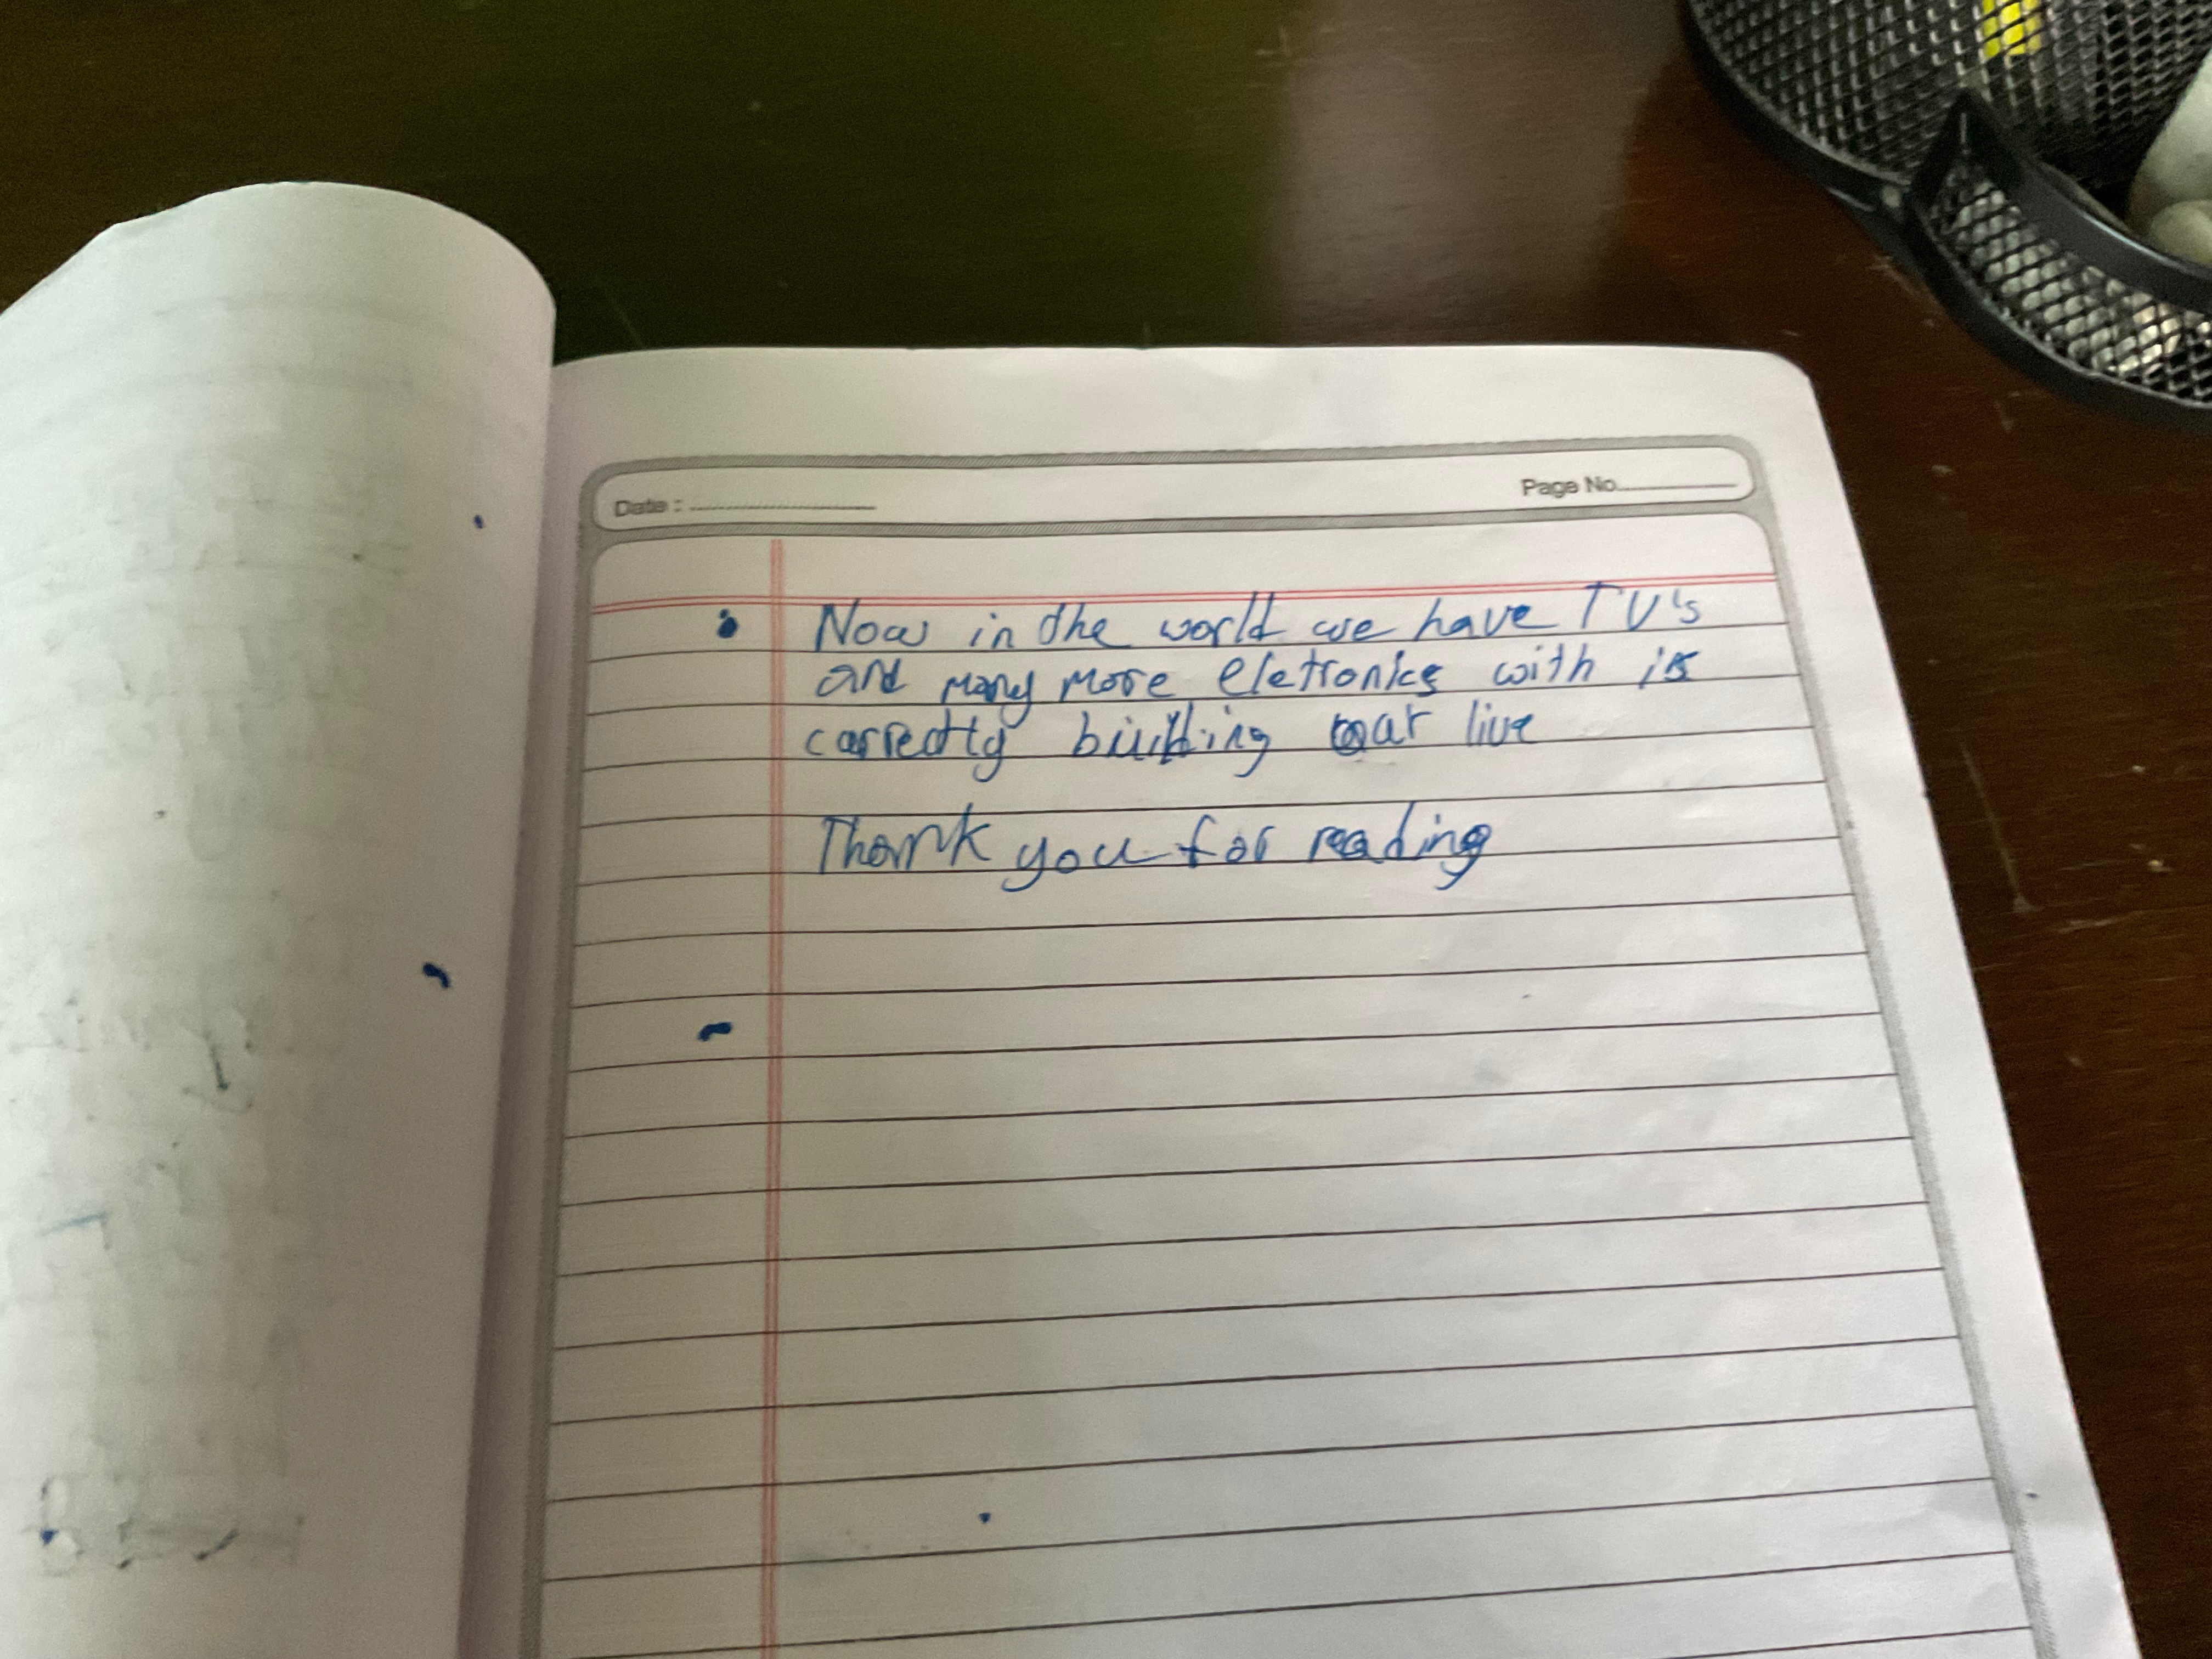 Date :
Page No.
Now in the world we have TV's
and many more eletronics with is
correctly building our live
Thank you for reading